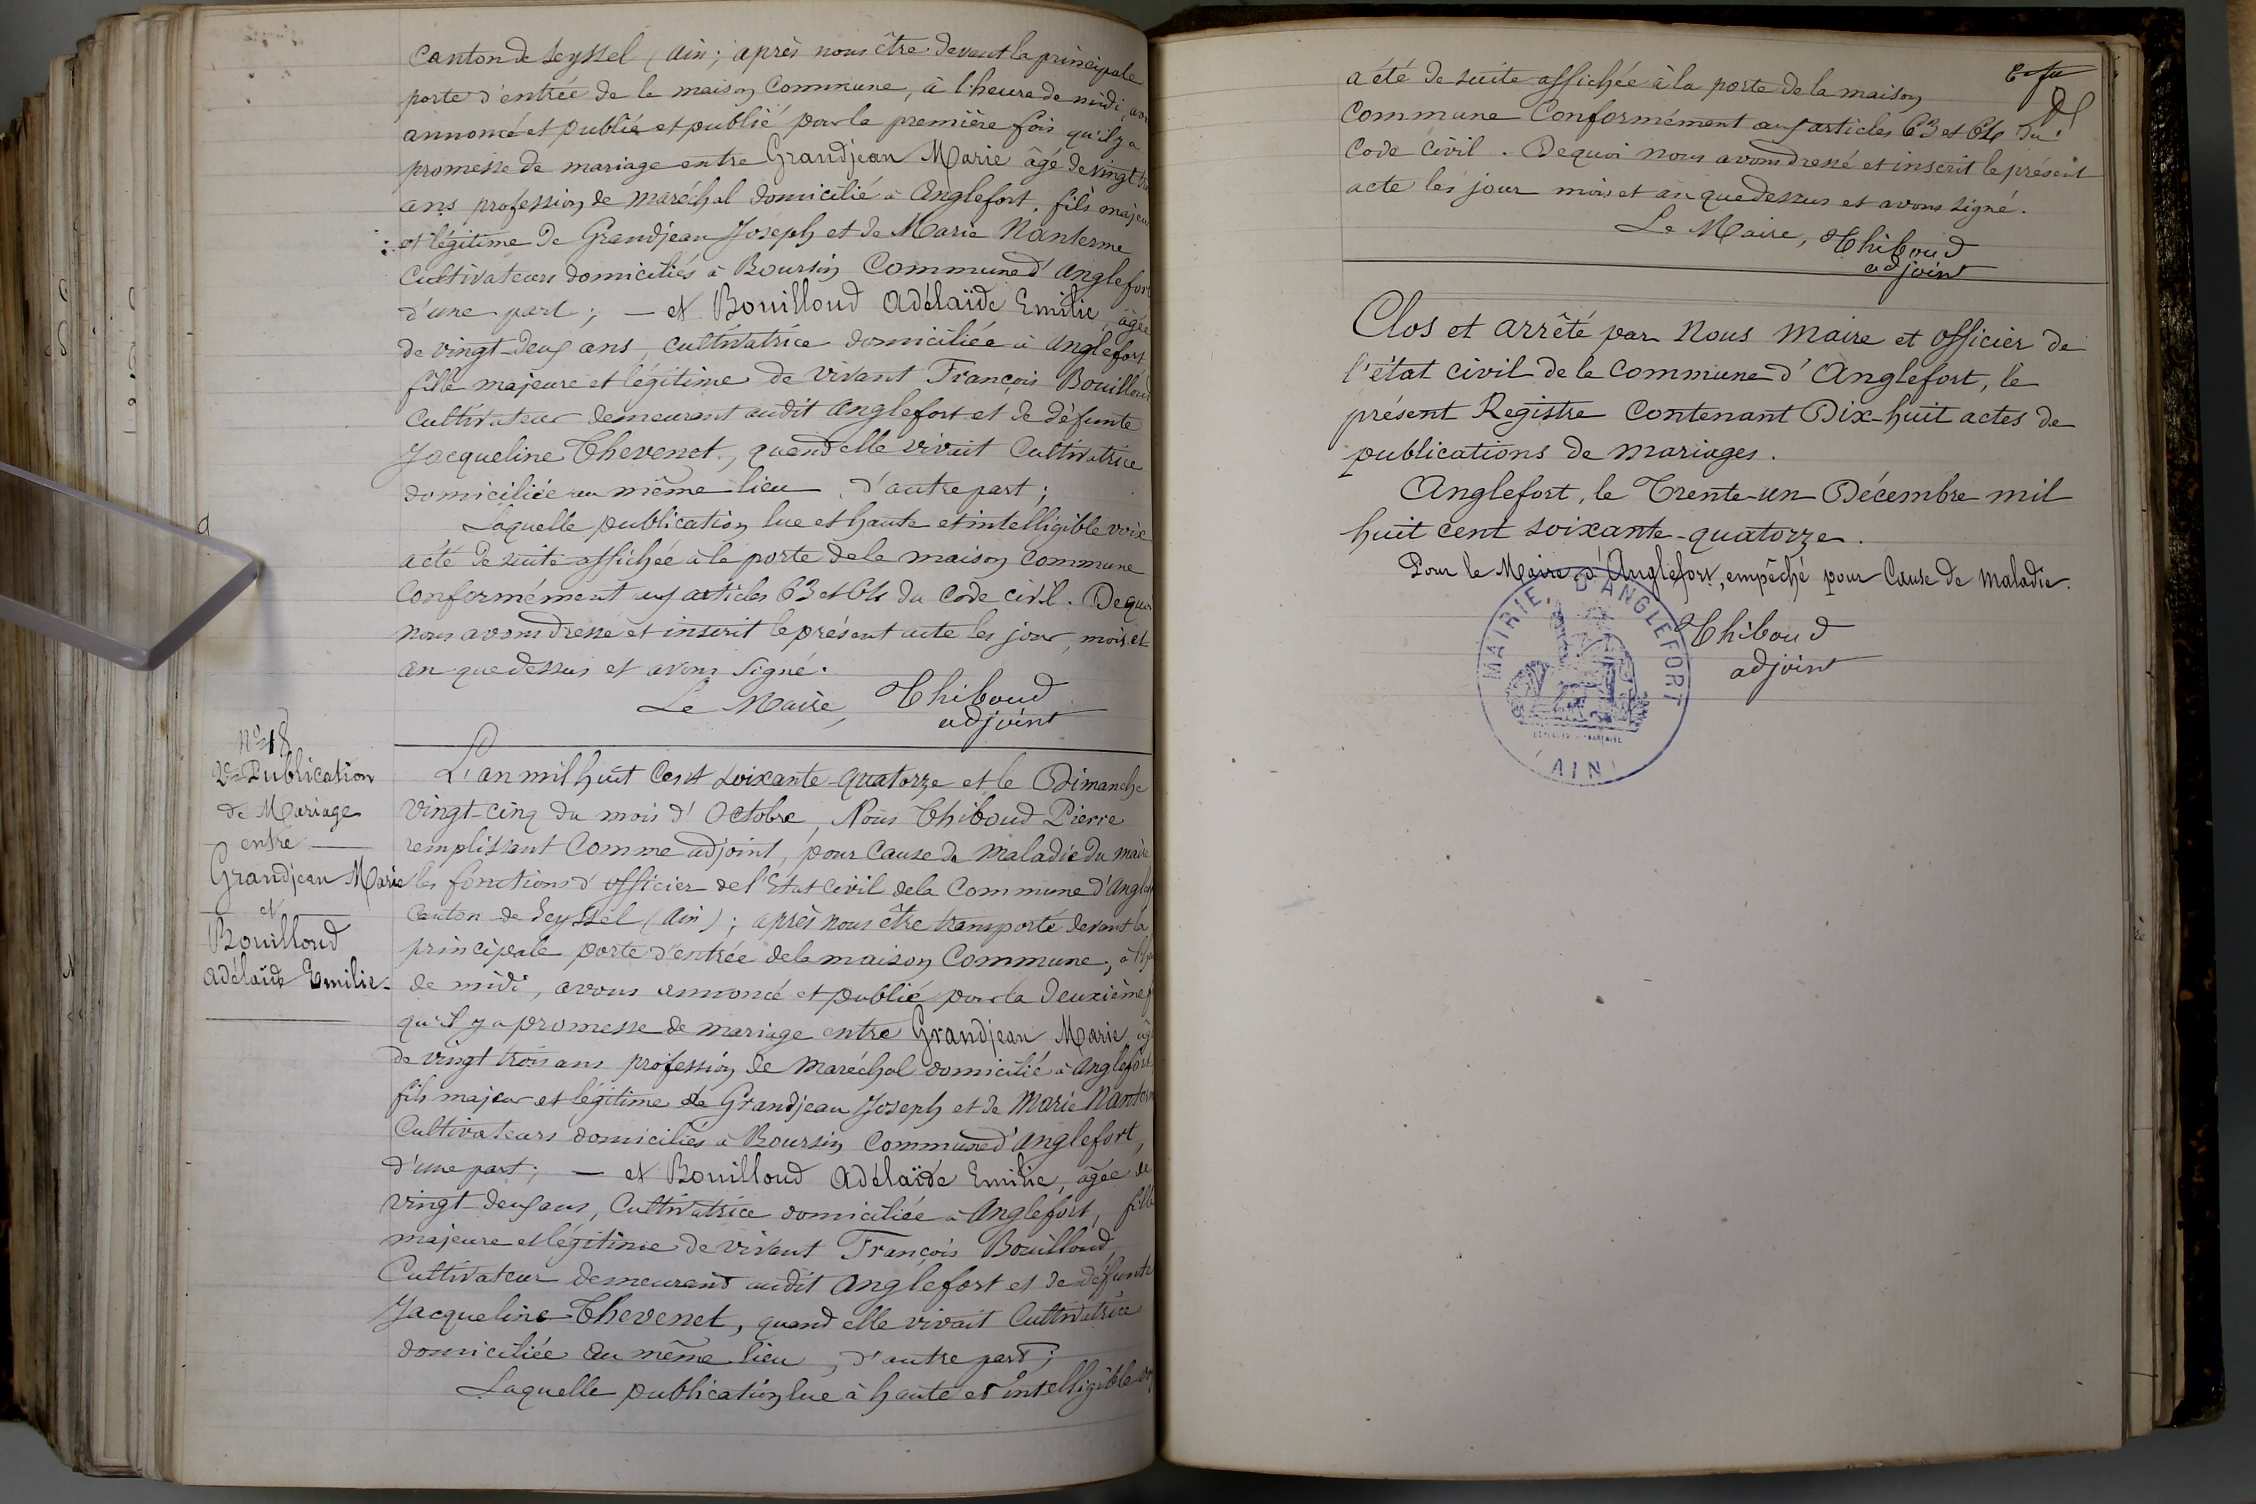 Canton de Seyssel (Ain; après nous être devant la principale
porte d'entrée de la maison Commune, à l'heure de midi, avo
annoncé et publié et publié pour la première fois qu'il y a
promesse de mariage entre Grandjean Marie âgé de vingt tro
ans profession de maréchal domicilié à Anglefort, fils majeur
et légitime de Grandjean Joseph et de Marie Nanterme
Cultivateurs domiciliés à Boursin Commune d'Anglefort
d'une part; — et Bouilloud Adélaïde Emilie, âgée
de vingt-deux ans, cultivatrice domiciliée à Anglefort
fille majeure et légitime de vivant François Bouilloud
Cultivateur demeurant audit Anglefort et de défunte
Jacqueline Thevenet, quand elle vivait Cultivatrice
domiciliée au même lieu, d'autre part;
Laquelle publication lue et haute et intelligible voix
a été de suite affichée à la porte de la maison Commune
Conformément aux articles 63 et 64 du Code civil. De quoi
nous avons dressé et inscrit le présent acte les jour, mois et
an que dessus et avons signé.
Le Maire, Thiboud
adjoint
N° 18
2e Publication
de Mariage
entre
Grandjean Marie
et
Bouilloud
Adélaïde Emilie.
L'an mil huit Cent soixante-quatorze et le Dimanche
vingt-cinq du mois d'Octobre, Nous Thiboud Pierre
remplissant Comme adjoint, pour Cause de Maladie du maire
les fonctions d'officier de l'Etat Civil de la Commune d'Anglef
Canton de Seyssel (Ain); après nous être transporté devant la
principale porte d'entrée de la maison Commune, à l'h
de midi, avons annoncé et publié pour la deuxième f
qu'il y a promesse de mariage entre Grandjean Marie, âg
de vingt trois ans profession de Maréchal domicilié à Anglefort
fils majeur et légitime de Grandjean Joseph et de Marie Nanterm
Cultivateurs domiciliés à Boursin Commune d'Anglefort,
d'une part; — et Bouilloud Adélaïde Emilie, âgée de
vingt-deux ans, Cultivatrice domiciliée à Anglefort, fille
majeure et légitime de vivant François Bouilloud,
Cultivateur demeurant audit Anglefort et de défunte
Jacqueline Thevenet, quand elle vivait Cultivatrice
domiciliée au même lieu, d'autre part;
Laquelle publication lue à haute et intelligible vo
a été de suite affichée à la porte de la maison
Commune Conformément aux articles 63 et 64 du
Code civil. De quoi nous avons dressé et inscrit le présent
acte les jour mois et an que dessus et avons signé.
Le Maire, Thiboud
adjoint
Clos et arrêté par Nous Maire et officier de
l'état civil de la Commune d'Anglefort, le
présent Registre Contenant Dix-huit actes de
publications de mariages.
Anglefort, le Trente-un Décembre mil
huit cent soixante-quatorze.
Pour le Maire d'Anglefort, empêché pour Cause de maladie.
Thiboud
adjoint
MAIRIE D'ANGLEFORT
(AIN)